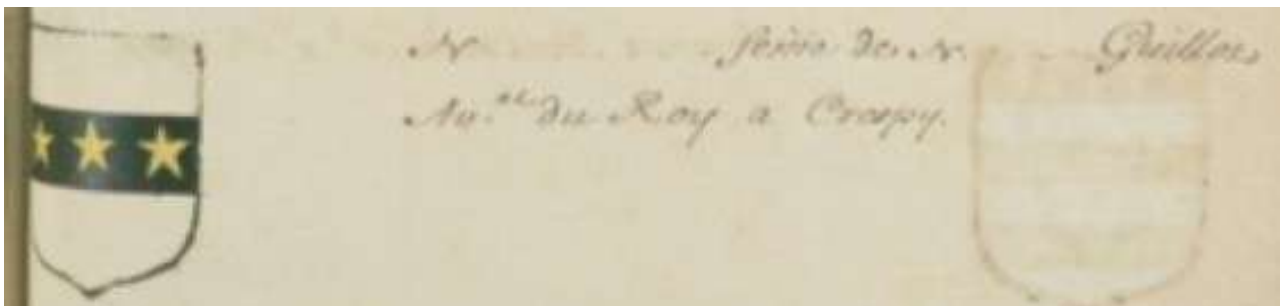 N ... femme de N. ... Guillot,
No.re du Roy a Crespy.